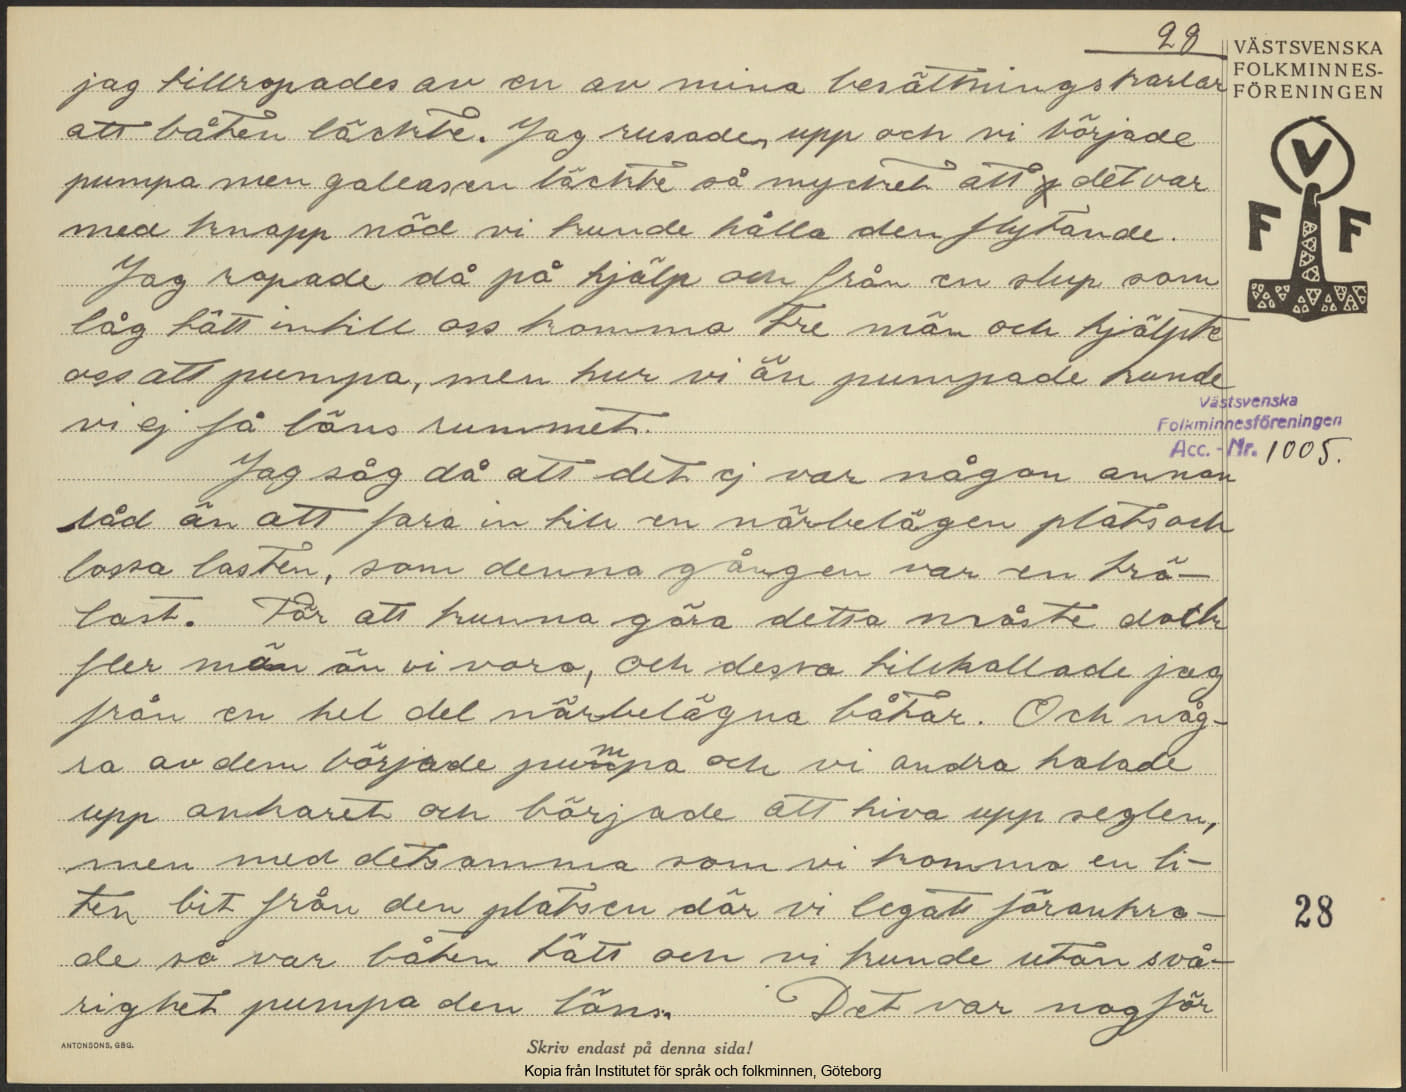 28
VÄSTSVENSKA
FOLKMINNES-
FÖRENINGEN
jag tillropades av en av mina besättningskarlar
att båten läckte. Jag rusade upp och vi började
pumpa men galeasen läckte så mycket att det var
med knapp nöd vi kunde hålla den flytande.
Jag ropade då på hjälp och från en slup som
låg tätt intill oss komma tre män och hjälpte
oss att pumpa, men hur vi än pumpade kunde
vi ej få läns rummet.
Jag såg då att det ej var någon annan
råd än att fara in till en närbelägen plats och
lossa lasten, som denna gången var en trä-
last. För att kunna göra detta måste dock
fler män än vi vara, och dessa tillkallade jag
från en hel del närbelägna båtar. Och någ-
ra av dem började pumpa och vi andra halade
upp ankaret och började att hiva upp seglen,
men med detsamma som vi komma en li-
ten bit från den platsen där vi legatt förankra-
de så var båten tätt och vi kunde utan svå-
righet pumpa den läns. Det var nog för
VFF
Västsvenska
Folkminnesföreningen
Acc. - Nr. 1005.
28
ANTONSONS, GBG.
Skriv endast på denna sida!
Kopia från Institutet för språk och folkminnen, Göteborg